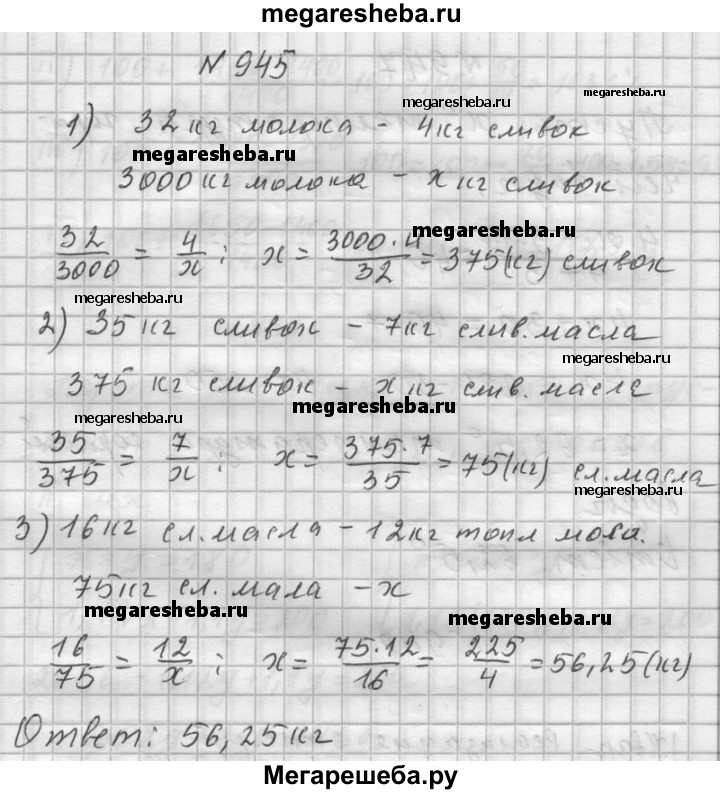 megaresheba.ru
N 945
megaresheba.ru
1) 32 кг молока - 4кг сливок
megaresheba.ru
3000 кг молока - х кг сливок
megaresheba.ru
32/3000 = 4/х ; х = 3000·4/32 = 375(кг) сливок
megaresheba.ru
2) 35 кг сливок - 7кг слив. масла
megaresheba.ru
375 кг сливок - х кг слив. масла
megaresheba.ru
megaresheba.ru
35/375 = 7/х ; х = 375·7/35 = 75(кг) сл. масла
megaresheba.ru
3) 16 кг сл. масла - 12кг топл масла.
75кг сл. мала - х
megaresheba.ru
megaresheba.ru
16/75 = 12/х ; х = 75·12/16 = 225/4 = 56,25(кг)
Ответ: 56,25 кг
Мегарешеба.ру